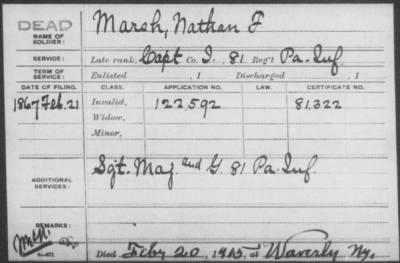 DEAD
NAME OF SOLDIER:
Marsh, Nathan F
SERVICE:
Late rank, Capt Co. I, 81 Reg't Pa. Inf.
TERM OF SERVICE:
Enlisted , 1 Discharged , 1
DATE OF FILING. CLASS. APPLICATION NO. LAW. CERTIFICATE NO.
1867 Feb. 21 Invalid, 122,592 81,322
Widow,
Minor,
ADDITIONAL SERVICES:
Sgt. Maj and G. 81 Pa. Inf.
REMARKS:
Died Feby 20, 1915 at Waverly Ny.